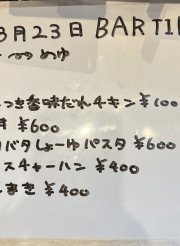 3月23日 BAR TI
めゆ
つき香味だれチキン ¥100
丼 ¥600
バタしょーゆパスタ ¥600
スチャーハン ¥400
まき ¥400